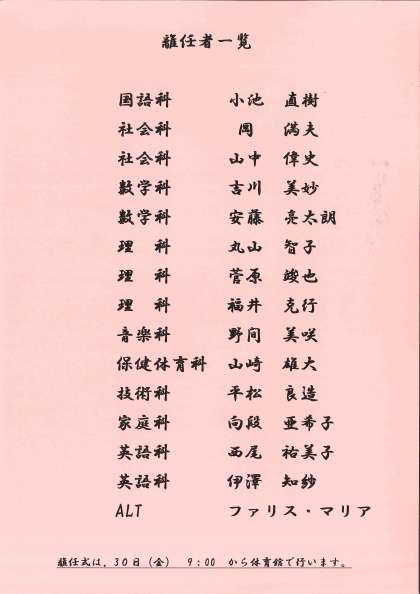 離任者一覧
国語科 小池 直樹
社会科 岡 満夫
社会科 山中 偉史
数学科 吉川 美妙
数学科 安藤 亮太朗
理 科 丸山 智子
理 科 菅原 竣也
理 科 福井 克行
音楽科 野間 美咲
保健体育科 山崎 雄大
技術科 平松 良造
家庭科 向段 亜希子
英語科 西尾 祐美子
英語科 伊澤 知紗
ALT ファリス・マリア
離任式は，30日（金） 9：00 から体育館で行います。